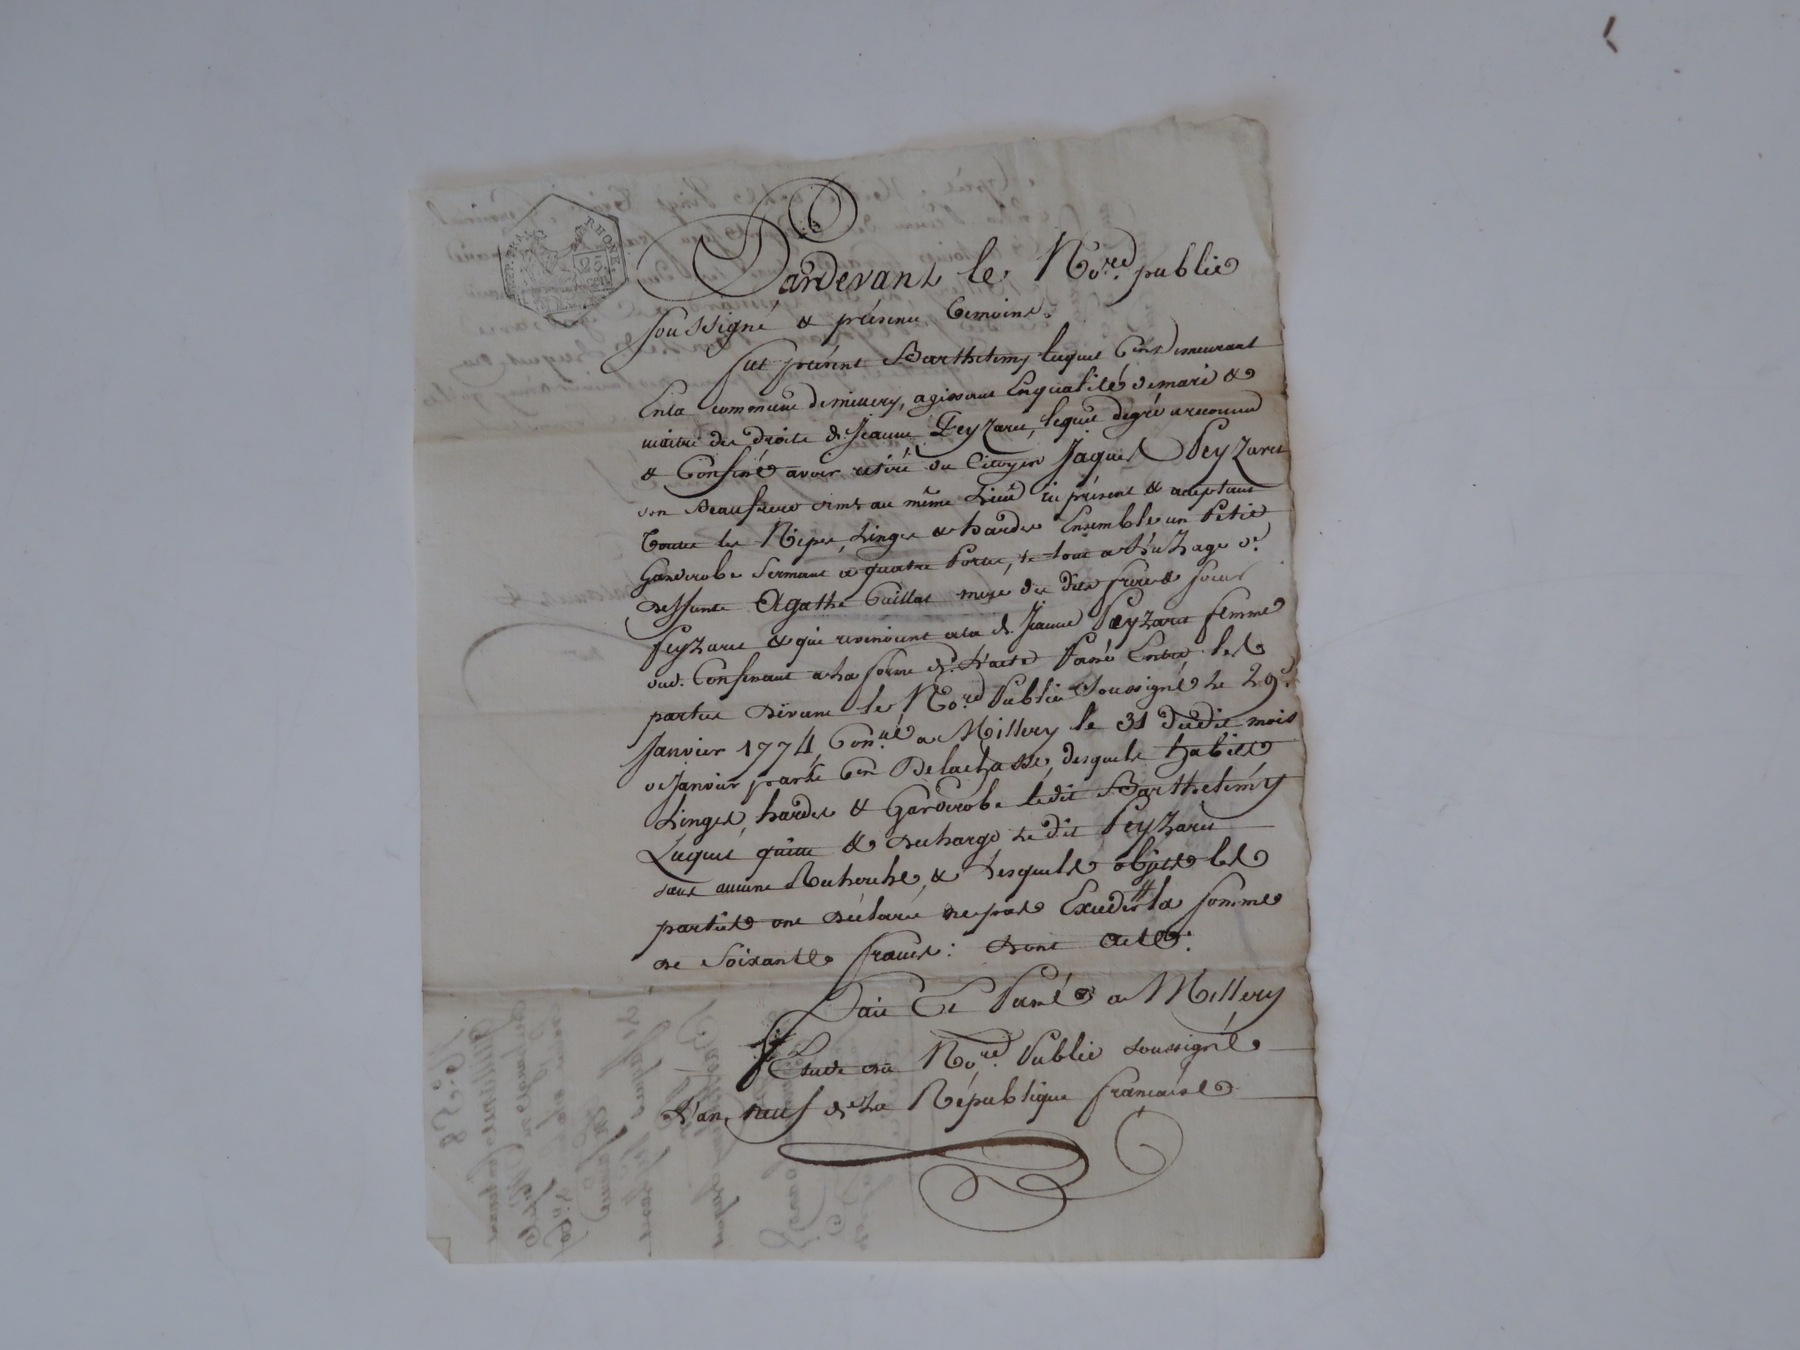 RHONE.
25
Pardevant le No.re public
soussigné & présence temoins.
fut présent Barthelemy Luquet Cen demeurant
En la commune de millery, agissant En qualité de mari &
maitre des droits de Jeanne Peyzaret, lequel degré a reconnu
& Confessé avoir retiré du Citoyen Jaques Peyzaret
son Beaufrere dmt au même Lieu ici présent & aceptant
toutes les Nipes, Linges & hardes Ensemble un Petit
Garderobe fermant a quatre Portes, le tout a l'uzage de
deffunte Agathe mere des dits frere & soeur
Peyzaret & qui revenoient a la de. Jeanne Peyzaret femme
dud. Confessant a la forme de l'acte Passé Entre les
parties devant le No.re Public Soussigné le 29e.
Janvier 1774, Con.lé a Millery le 31 dudit mois
de Janvier par le Cen Delachasse, desquels habits
Linges, hardes & Garderobe ledit Barthelemy
Luquet quitte & decharge le dit Peyzaret
sans aucune Recherche, & lesquels objets les
parties ont déclaré ne pas Exceder la somme
de Soixante francs: dont acte:
Fait Et Passé a Millery
Etude du No.re Public soussigné
L'an neuf de la République francaise